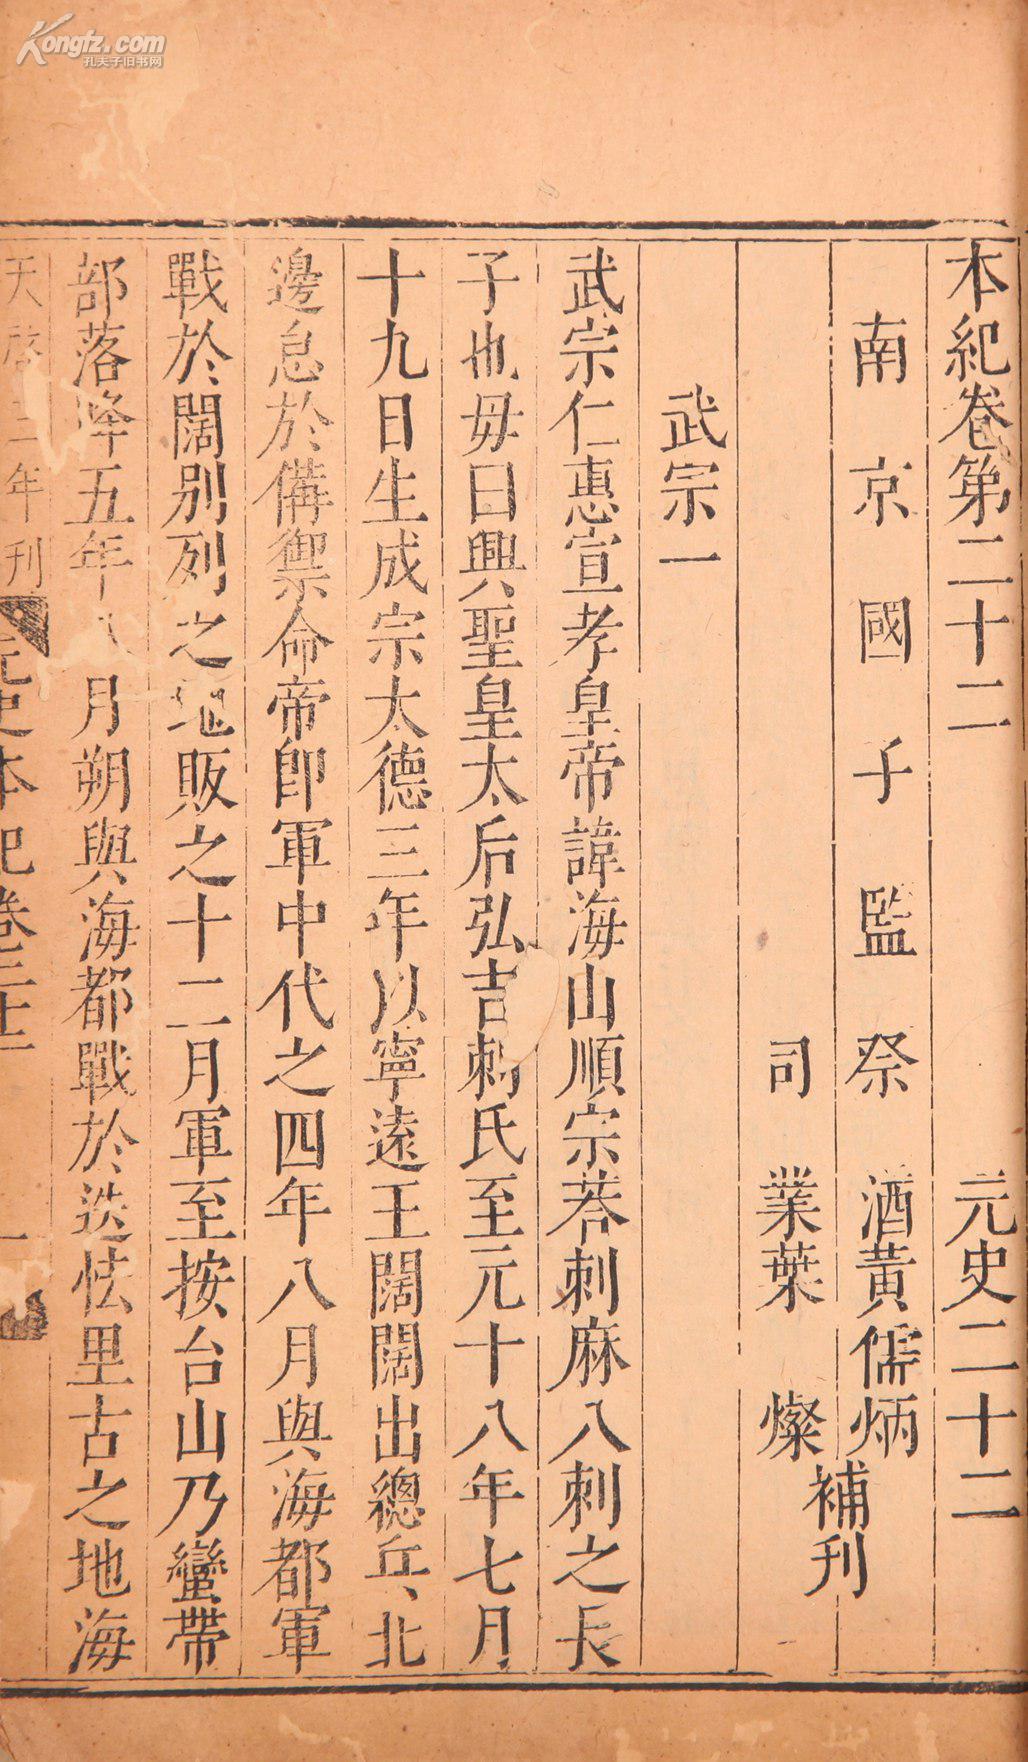 Kongfz.com
孔夫子旧书网
本紀卷第二十二 元史二十二
南京國子監祭酒黃儒炳
司業葉燦
補刊
武宗一
武宗仁惠宣孝皇帝諱海山順宗荅刺麻八刺之長
子也毋曰興聖皇太后弘吉刺氏至元十八年七月
十九日生成宗太德三年以寧遠王闊闊出總兵北
邊怠於備禦命帝即軍中代之四年八月與海都軍
戰於闊別列之地敗之十二月軍至按台山乃蠻帶
部落降五年八月朔與海都戰於迭怯里古之地海
天啓二年刊 元史本紀卷二十二 一